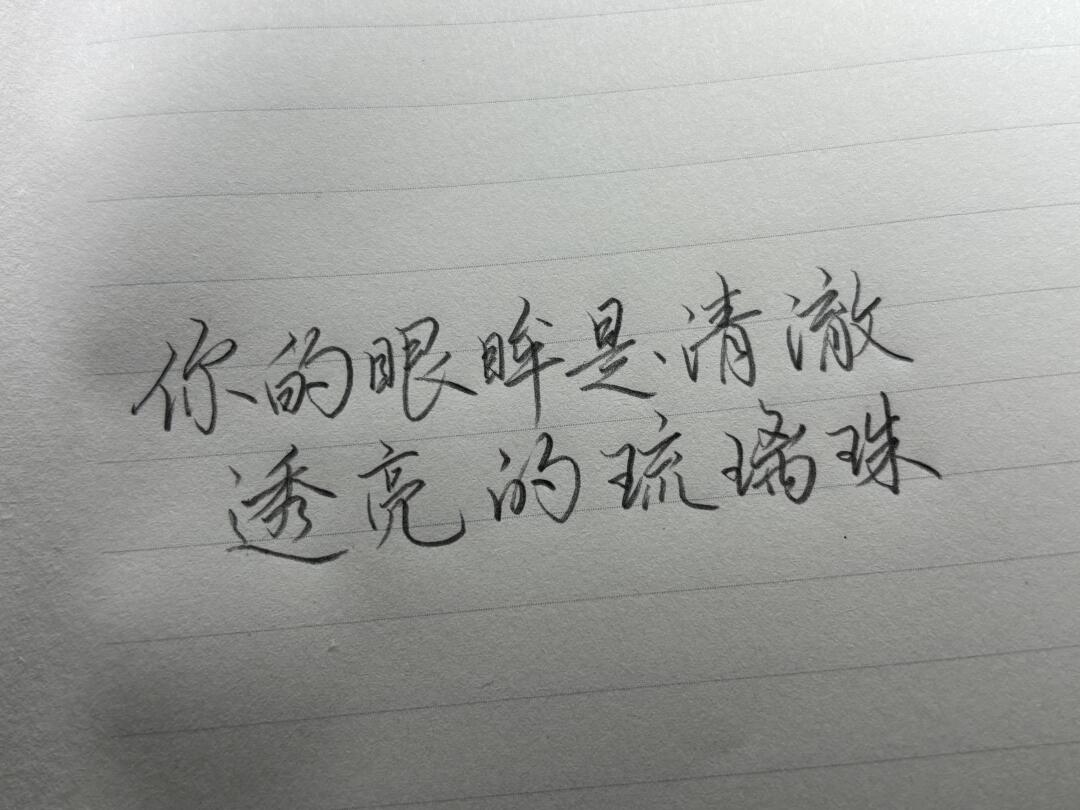 你的眼眸是清澈
透亮的琉璃珠